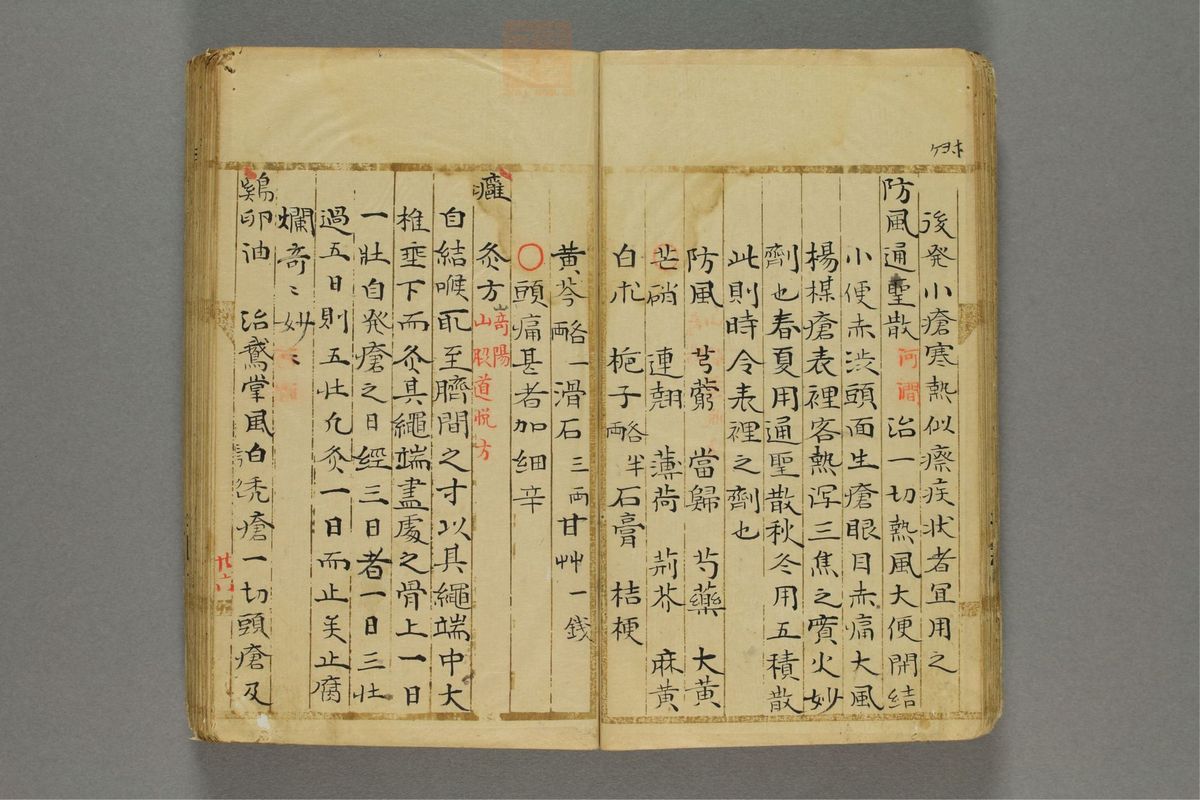 後発小瘡寒熱似瘵疾状者冝用之
防風通聖散 河澗 治一切熱風大便閇結
小便赤渋頭面生瘡眼目赤痛大風
楊楳瘡表裡客熱泻三焦之實火妙
劑也春夏用通聖散秋冬用五積散
此則時令表裡之劑也
防風 芎藭 當歸 芍藥 大黄
芒硝 連翹 薄荷 荊芥 麻黄
白朮 栀子 略半 石膏 桔梗
黄芩 略一 滑石 三两 甘艸 一銭
○頭痛甚者加細辛
癰 灸方
自結喉取至臍間之寸以其繩端中大
椎垂下而灸其繩端盡處之骨上一日
一壮自発瘡之日經三日者一日三壮
過五日則五壮允灸一日而止羙止腐
爛奇〻妙〻
鷄卵油 治鵞掌風白秃瘡一切頭瘡及
廿六